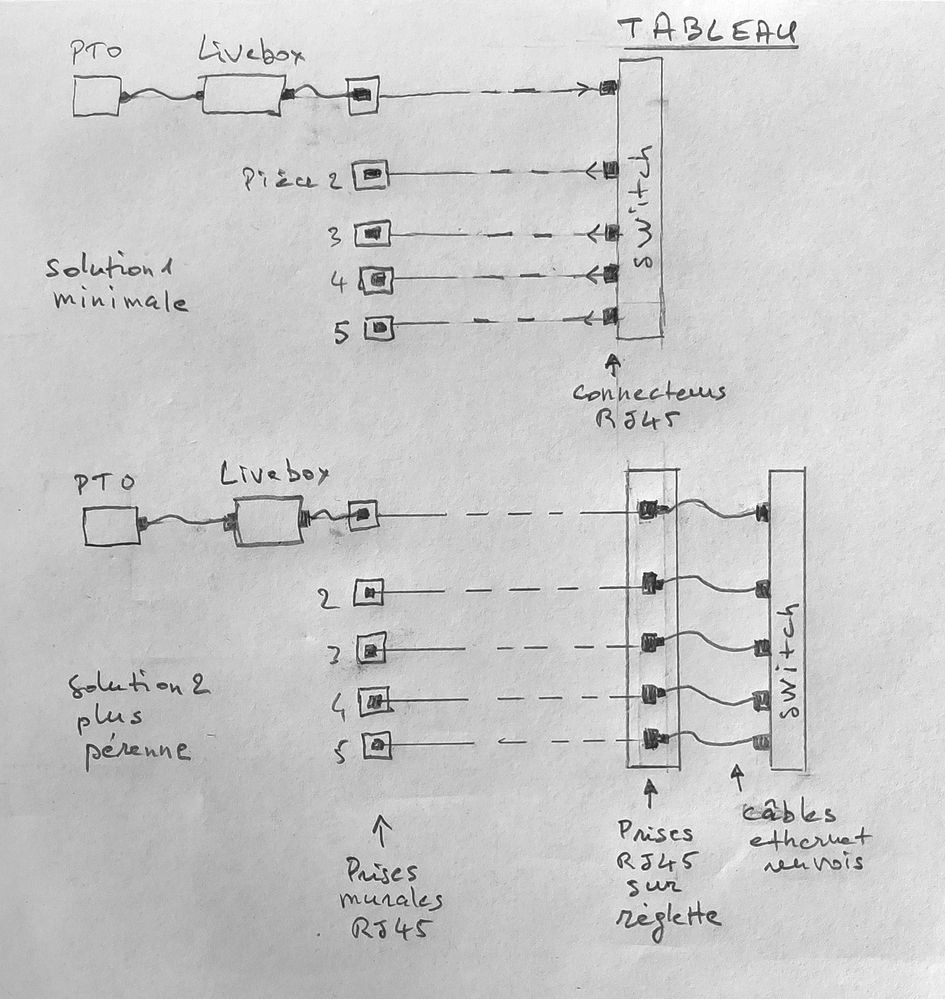 TABLEAU
PTO Livebox
Pièce 2
3
4
5
Switch
Solution 1
minimale
Connecteurs
RJ45
PTO Livebox
2
3
4
5
Switch
Solution 2
plus
pérenne
Prises
murales
RJ45
Prises
RJ45
sur
réglette
câbles
ethernet
renvois